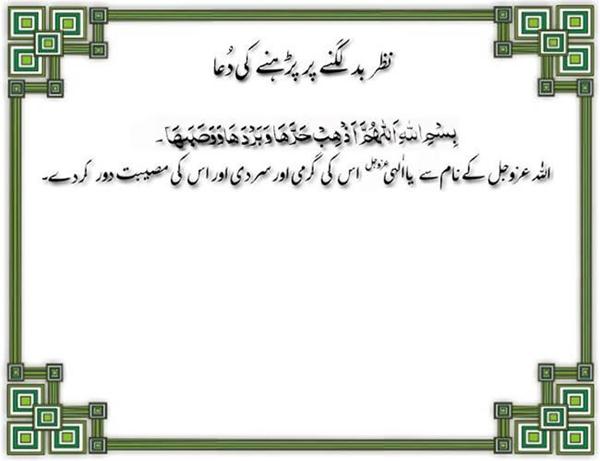 نظر بد لگنے پر پڑھنے کی دُعا
بِسْمِ اللهِ اَللّٰهُمَّ اَذْهِبْ حَرَّهَا وَبَرْدَهَا وَوَصَبَهَا۔
اللہ عزوجل کے نام سے یاالٰہی عزوجل اس کی گرمی اور سردی اور اس کی مصیبت دور کردے۔